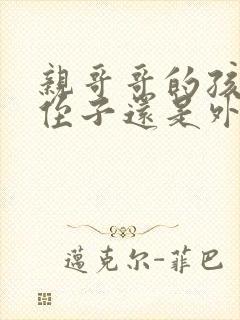 親哥哥的孩
侄子還是外
邁克尔-菲巴